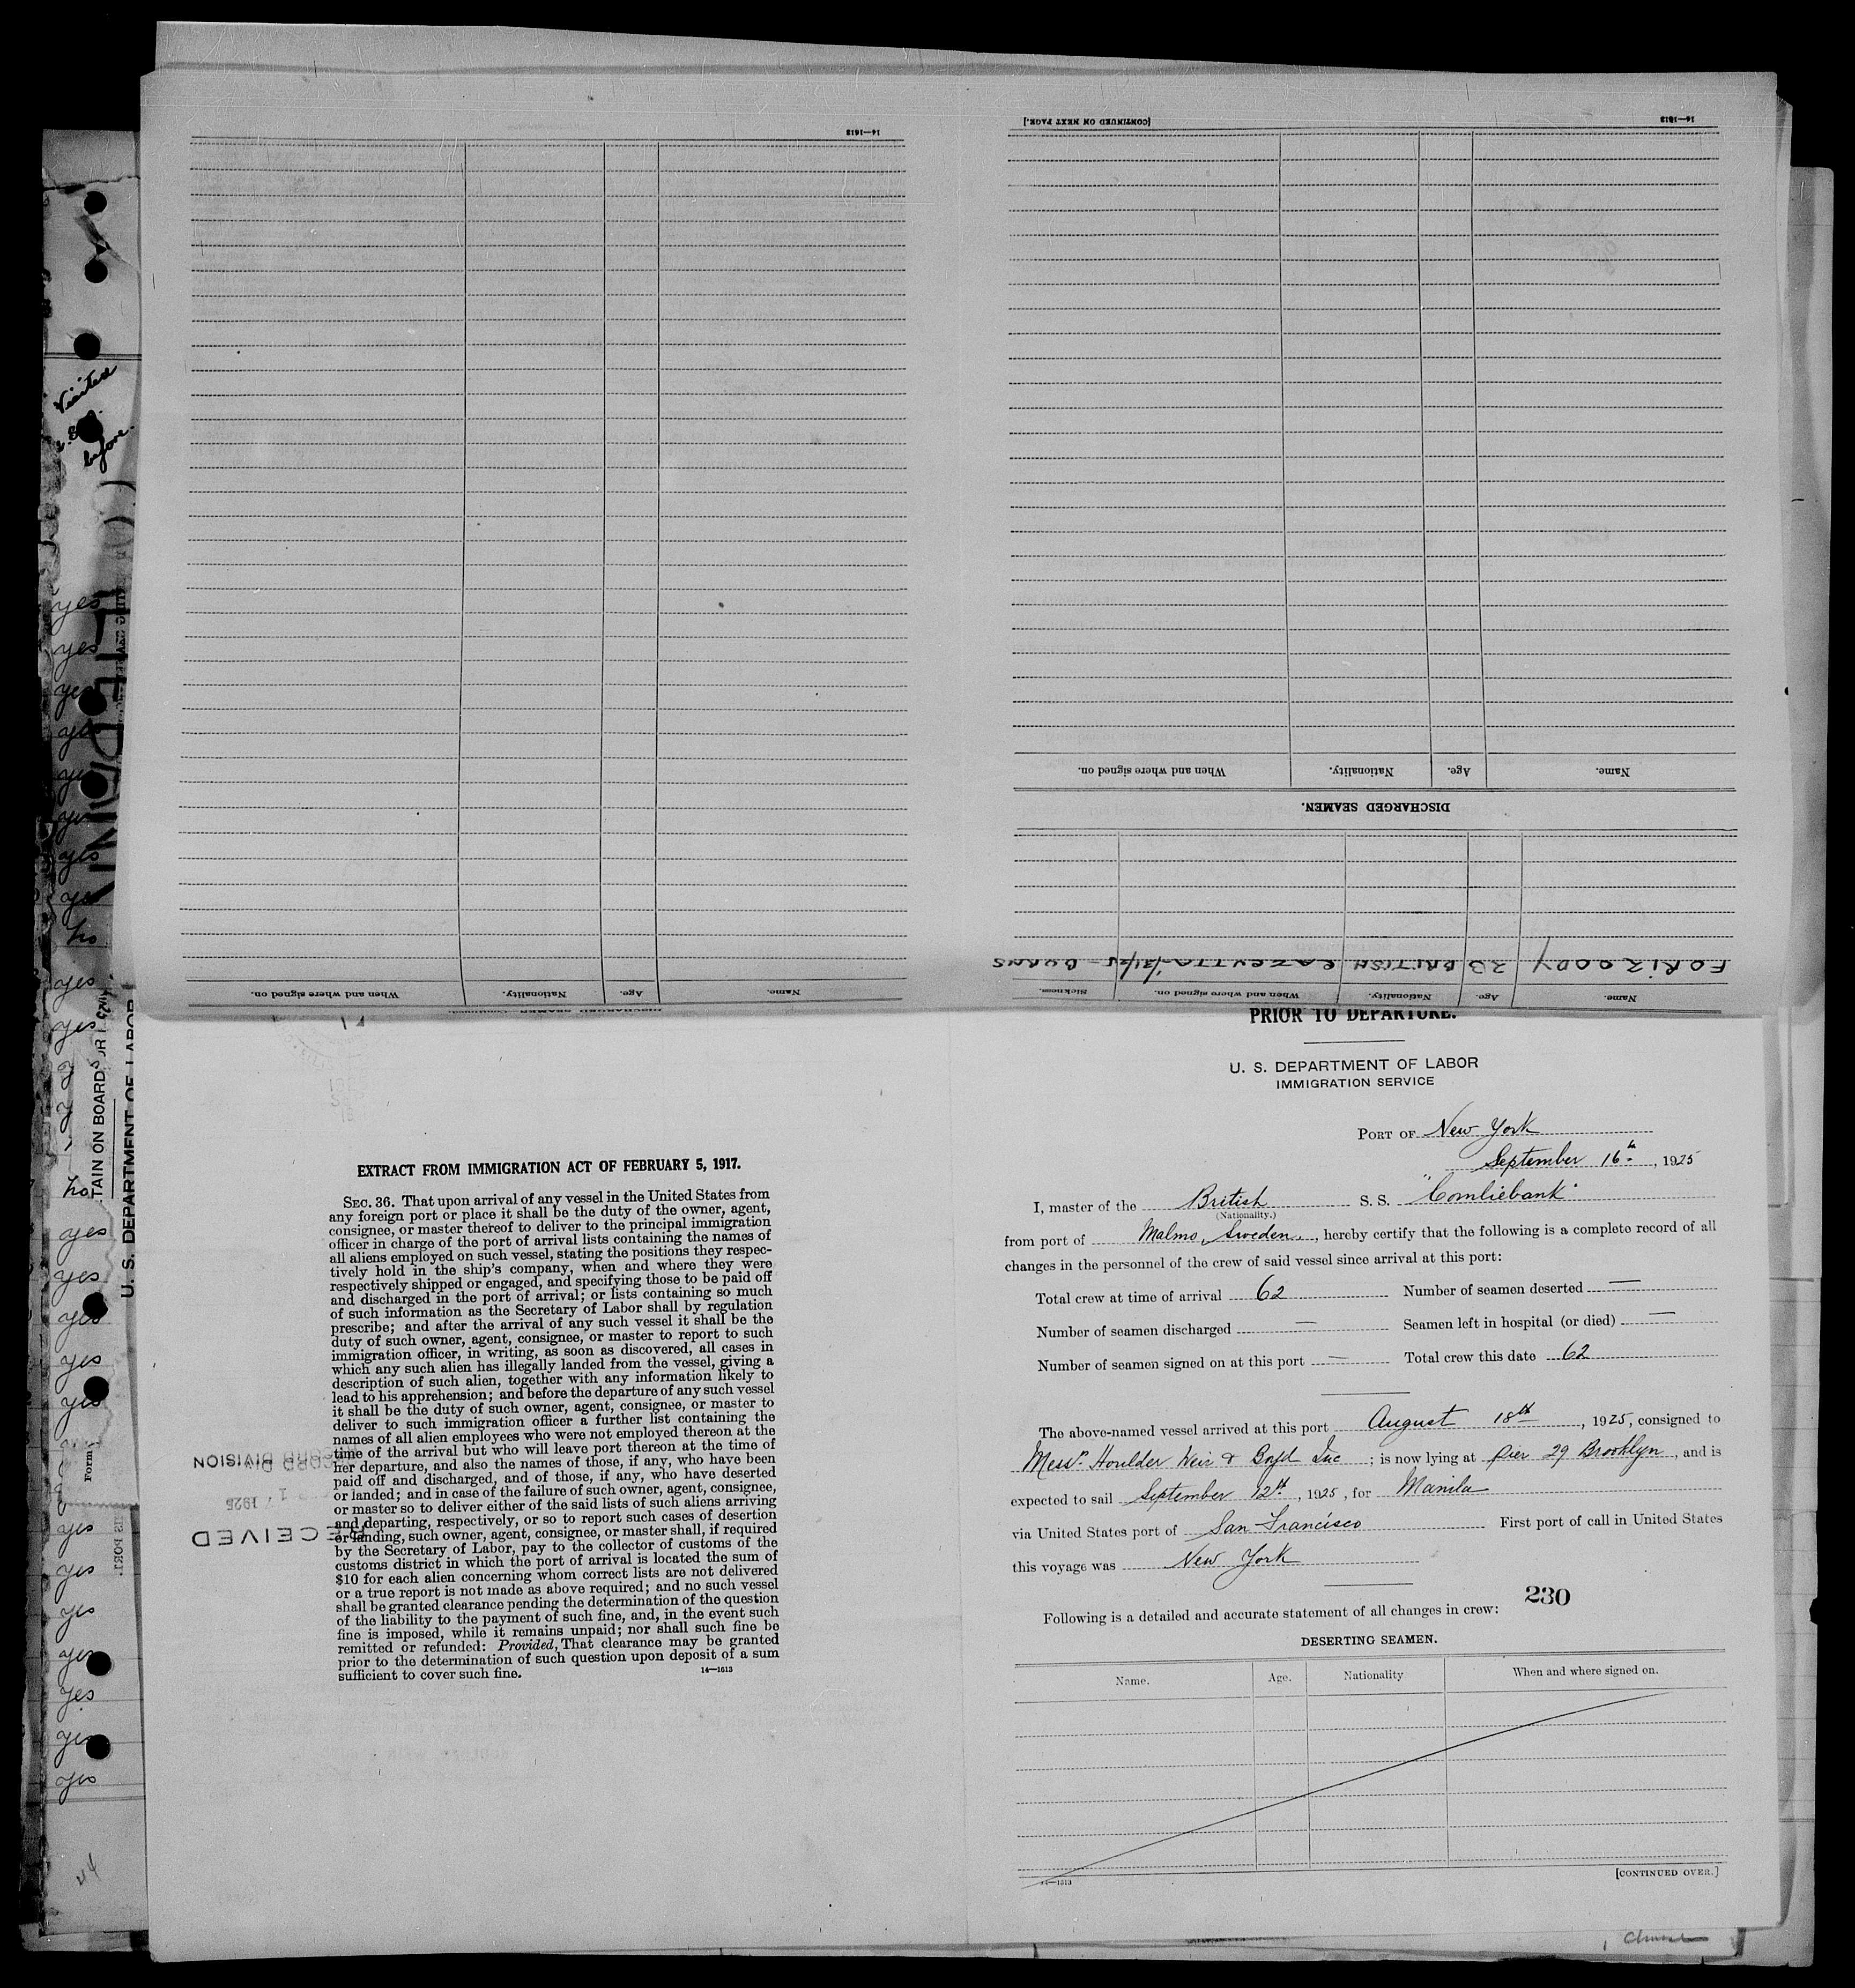 14—1613
14—1613
[CONTINUED ON NEXT PAGE.]
Name.
Age.
Nationality.
When and where signed on.
DISCHARGED SEAMEN.
FORIZOODY 23 BRITISH CALCUTTA 1/21/25 - BURNS
Name.
Age.
Nationality.
When and where signed on.
Sickness.
Name.
Age.
Nationality.
When and where signed on.
Visited
before.
yes
yes
yes
yes
yes
yes
yes
yes
no
yes
yes
no
yes
yes
yes
yes
yes
yes
yes
yes
yes
yes
yes
yes
TAIN ON BOARD
U. S. DEPARTMENT OF LABOR
Form
RECORD DIVISION
1925
RECEIVED
EXTRACT FROM IMMIGRATION ACT OF FEBRUARY 5, 1917.
SEC. 36. That upon arrival of any vessel in the United States from
any foreign port or place it shall be the duty of the owner, agent,
consignee, or master thereof to deliver to the principal immigration
officer in charge of the port of arrival lists containing the names of
all aliens employed on such vessel, stating the positions they respec-
tively hold in the ship's company, when and where they were
respectively shipped or engaged, and specifying those to be paid off
and discharged in the port of arrival; or lists containing so much
of such information as the Secretary of Labor shall by regulation
prescribe; and after the arrival of any such vessel it shall be the
duty of such owner, agent, consignee, or master to report to such
immigration officer, in writing, as soon as discovered, all cases in
which any such alien has illegally landed from the vessel, giving a
description of such alien, together with any information likely to
lead to his apprehension; and before the departure of any such vessel
it shall be the duty of such owner, agent, consignee, or master to
deliver to such immigration officer a further list containing the
names of all alien employees who were not employed thereon at the
time of the arrival but who will leave port thereon at the time of
her departure, and also the names of those, if any, who have been
paid off and discharged, and of those, if any, who have deserted
or landed; and in case of the failure of such owner, agent, consignee,
or master so to deliver either of the said lists of such aliens arriving
and departing, respectively, or so to report such cases of desertion
or landing, such owner, agent, consignee, or master shall, if required
by the Secretary of Labor, pay to the collector of customs of the
customs district in which the port of arrival is located the sum of
$10 for each alien concerning whom correct lists are not delivered
or a true report is not made as above required; and no such vessel
shall be granted clearance pending the determination of the question
of the liability to the payment of such fine, and, in the event such
fine is imposed, while it remains unpaid; nor shall such fine be
remitted or refunded: Provided, That clearance may be granted
prior to the determination of such question upon deposit of a sum
sufficient to cover such fine.
14—1613
PRIOR TO DEPARTURE.
U. S. DEPARTMENT OF LABOR
IMMIGRATION SERVICE
PORT OF New York
September 16th, 1925
I, master of the British S. S. "Comliebank"
(Nationality.)
from port of Malmo, Sweden., hereby certify that the following is a complete record of all
changes in the personnel of the crew of said vessel since arrival at this port:
Total crew at time of arrival 62 Number of seamen deserted —
Number of seamen discharged — Seamen left in hospital (or died) —
Number of seamen signed on at this port — Total crew this date 62
The above-named vessel arrived at this port August 18th, 1925, consigned to
Messrs. Houlder Weir & Boyd Inc; is now lying at pier 29 Brooklyn, and is
expected to sail September 12th, 1925, for Manila
via United States port of San Francisco First port of call in United States
this voyage was New York
230
Following is a detailed and accurate statement of all changes in crew:
DESERTING SEAMEN.
Name. Age. Nationality When and where signed on.
14—1613
[CONTINUED OVER.]